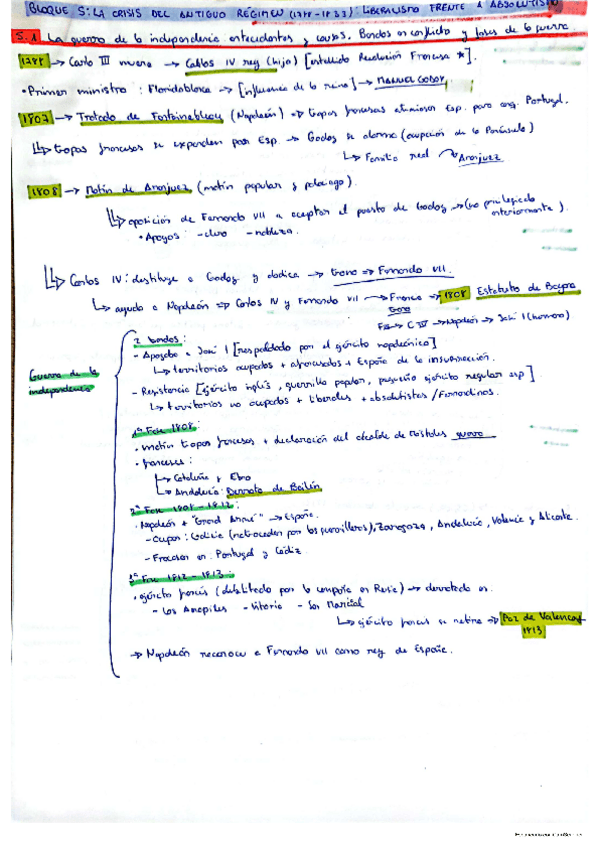 BLOQUE 5: LA CRISIS DEL ANTIGUO REGIMEN (1788-1833): LIBERALISMO FRENTE A ABSOLUTISMO
5.1 La guerra de la independencia antecedentes y causas. Bandos en conflicto y fases de la guerra.
1788 → Carlo III muere → Carlos IV rey (hijo) [estallido Revolución Francesa *].
• Primer ministro: Floridablanca → [influencia de la reina] → MANUEL GODOY
1807 → Tratado de Fontainebleau (Napoleón) → tropas francesas Esp. para conq. Portugal.
↳ tropas francesas se expanden por Esp → Godoy se alarma (ocupación de la Península)
↳ Familia real Aranjuez
1808 → Motín de Aranjuez (motín popular y palaciego).
↳ oposición de Fernando VII a aceptar el puesto de Godoy → (no privilegiado anteriormente).
• Apoyos: - clero - nobleza.
↳ Carlos IV: destituye a Godoy y abdica → trono ⇒ Fernando VII.
↳ ayuda a Napoleón ⇒ Carlos IV y Fernando VII → Francia → 1808 Estatuto de Bayona
trono
→ C IV → Napoleón → José I (hermano)
Guerra de la independencia
2 bandos:
- Apoyaba a José I [respaldado por el ejército napoleónico]
↳ territorios ocupados + afrancesados + España de la insurrección.
- Resistencia [ejército inglés, guerrilla popular, pequeño ejército regular esp]
↳ territorios no ocupados + liberales + absolutistas / Fernandinos.
1ª Fase 1808:
• motín tropas francesas + declaración del alcalde de Móstoles guerra
• franceses:
↳ Cataluña y Ebro
↳ Andalucía: Derrota de Bailén
2ª Fase 1808 - 1812:
• Napoleón + "Grand Armé" → España.
- Ocupan: Galicia (retroceden por los guerrilleros), Zaragoza, Andalucía, Valencia y Alicante.
- Fracasan en: Portugal y Cádiz.
3ª Fase 1812 - 1813:
• ejército francés (debilitado por la campaña en Rusia) → derrotado en
- Los Arapiles - Vitoria - San Marcial
↳ ejército francés se retira → Paz de Valencay 1813
→ Napoleón reconoce a Fernando VII como rey de España.